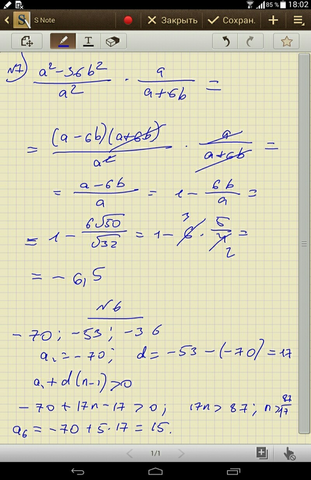 85 % 18:02
S Note Закрыть Сохран.
N7) (a²-36b²)/a² · a/(a+6b) =
= (a-6b)(a+6b)/a² · a/(a+6b) =
= (a-6b)/a = 1 - 6b/a =
= 1 - 6√50/√32 = 1 - 6 · 5/4 =
3 2
= -6,5
N6
-70; -53; -36
a₁=-70; d= -53-(-70)=17
a₁+d(n-1)>0
-70+17n-17>0; 17n>87; n>87/17
a₆=-70+5·17=15.
1/1